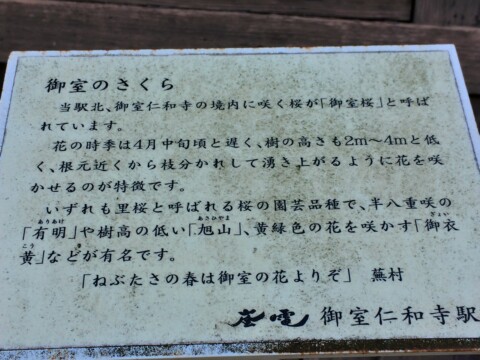 御室のさくら
当駅北、御室仁和寺の境内に咲く桜が「御室桜」と呼ば
れています。
花の時季は4月中旬頃と遅く、樹の高さも2m～4mと低
く、根元近くから枝分かれして湧き上がるように花を咲
かせるのが特徴です。
いずれも里桜と呼ばれる桜の園芸品種で、半八重咲の
「有明」や樹高の低い「旭山」、黄緑色の花を咲かす「御衣
黄」などが有名です。
「ねぶたさの春は御室の花よりぞ」 蕪村
嵐電 御室仁和寺駅